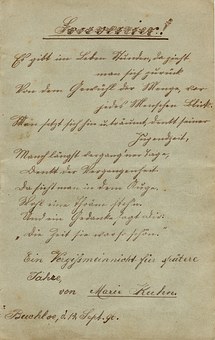 Souvenir!
Es gibt im Leben Stunden, da zieht
man sich zurück
Von dem Gewühl der Menge, vor
jedes Menschen Blick.
Man setzt sich hin u. träumt, denkt seiner
Jugendzeit,
Manch längst vergang'ner Tage,
Denkt der Vergangenheit
da sitzt man in dem
Wohl eine Thräne steh'n
Und ein Gedanke sagt uns:
„Die Zeit sie war so schön."
Ein Vergißmeinnicht für spätere
Jahre,
von Marie Kuhn.
d. 13. Sept. 90.